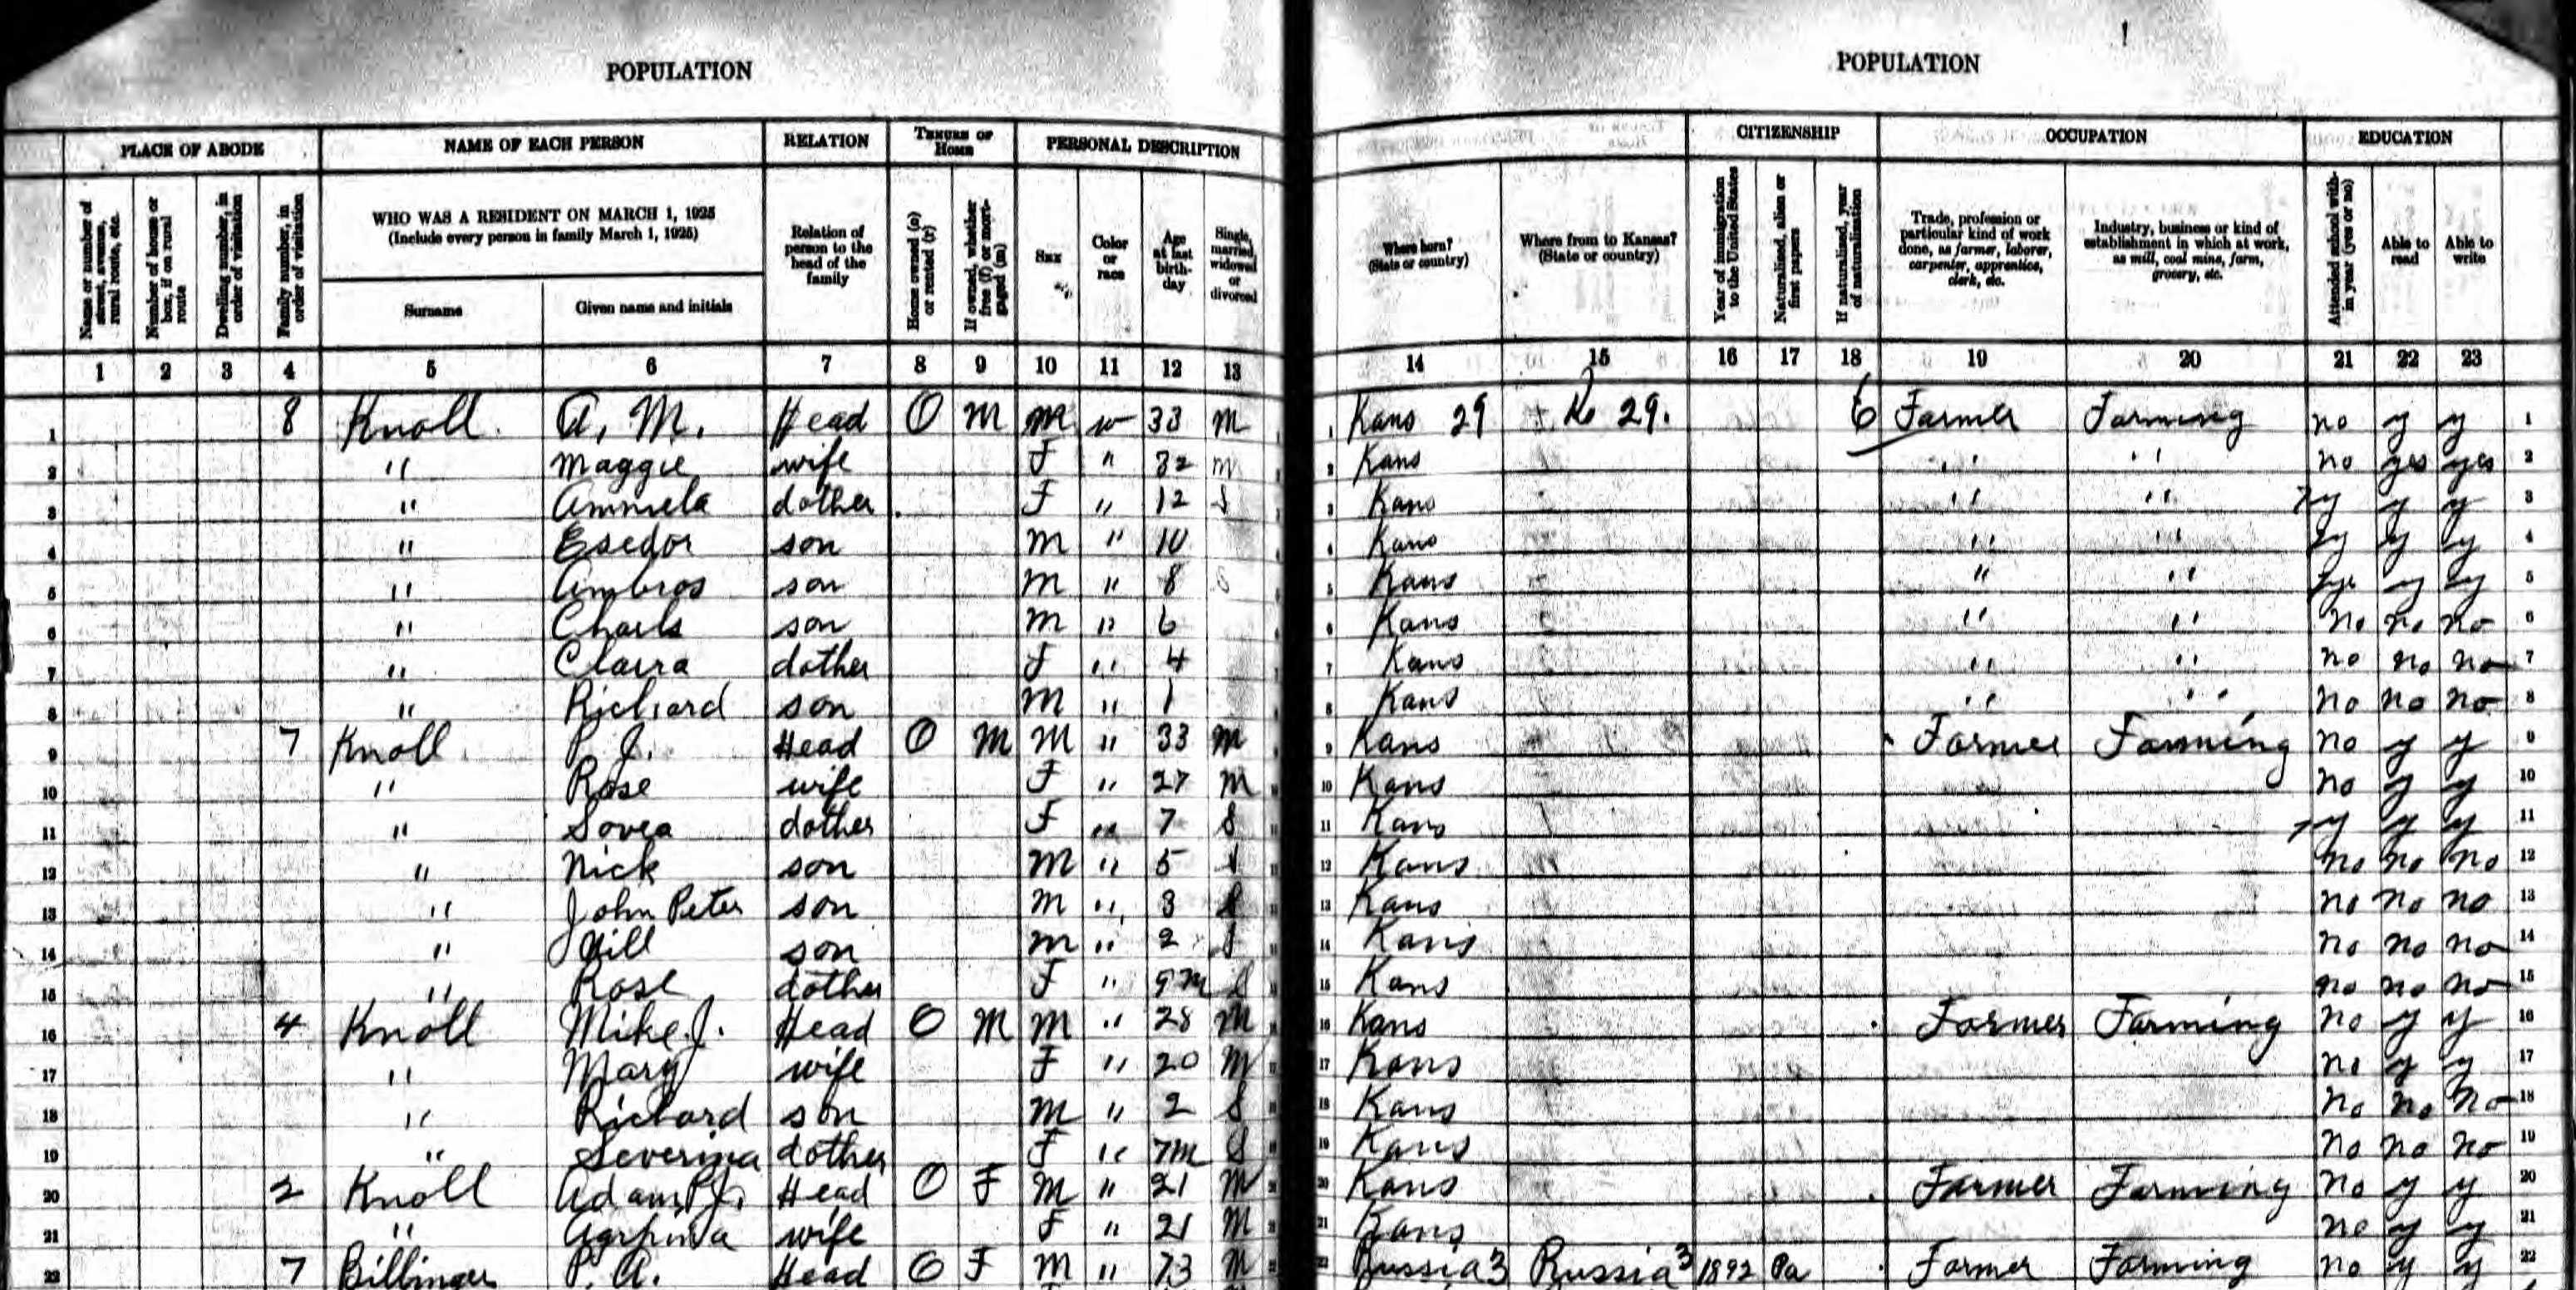 POPULATION POPULATION
PLACE OF ABODE NAME OF EACH PERSON RELATION TENURE OF HOME PERSONAL DESCRIPTION CITIZENSHIP OCCUPATION EDUCATION
Name or number of street, avenue, rural route, etc.
Number of house or box, if on rural route
Dwelling number, in order of visitation
Family number, in order of visitation
WHO WAS A RESIDENT ON MARCH 1, 1925
(Include every person in family March 1, 1925)
Surname
Given name and initials
Relation of person to the head of the family
Home owned (o) or rented (r)
If owned, whether free (f) or mortgaged (m)
Sex
Color or race
Age at last birthday
Single, married, widowed or divorced
Where born? (State or country)
Where from to Kansas? (State or country)
Year of immigration to the United States
Naturalized, alien or first papers
If naturalized, year of naturalization
Trade, profession or particular kind of work done, as farmer, laborer, carpenter, apprentice, clerk, etc.
Industry, business or kind of establishment in which at work, as mill, coal mine, farm, grocery, etc.
Attended school within year (yes or no)
Able to read
Able to write
1 2 3 4 5 6 7 8 9 10 11 12 13 14 15 16 17 18 19 20 21 22 23
1 8 Knoll A. M. Head O M M w 33 M 1 Kans 29 29. 6 Farmer Farming no y y 1
2 " Maggie wife F " 32 m 2 Kans " " no yes yes 2
3 " dother F " 12 S 3 Kans " " y y y 3
4 " Esedor son m " 10 4 Kans " " y y y 4
5 " Ambros son m " 8 S 5 Kans " " y y 5
6 " Charls son m " 6 6 Kans " " no no no 6
7 " Claira dother F " 4 7 Kans " " no no no 7
8 " Richard son m " 1 8 Kans " " no no no 8
9 7 Knoll P. J. Head O M M " 33 m 9 Kans Farmer Farming no y y 9
10 " Rose wife F " 27 m 10 Kans no y y 10
11 " Sovea dother F " 7 S 11 Kans y y y 11
12 " Nick son m " 5 S 12 Kans no no no 12
13 " John Peter son m " 3 S 13 Kans no no no 13
14 " son m " 2 S 14 Kans no no no 14
15 " Rose dother F " 9m S 15 Kans no no no 15
16 4 Knoll Mike J. Head O M M " 28 M 16 Kans Farmer Farming no y y 16
17 " Mary wife F " 20 M 17 Kans no y y 17
18 " Richard son m " 2 S 18 Kans no no no 18
19 " Severina dother F " 7m S 19 Kans no no no 19
20 2 Knoll Adam J. Head O F m " 21 M 20 Kans Farmer Farming no y y 20
21 " wife F " 21 M 21 Kans no y y 21
22 7 Billinger P. A. Head O F m " 73 M 22 Russia 3 Russia 3 1892 Pa Farmer Farming no y y 22